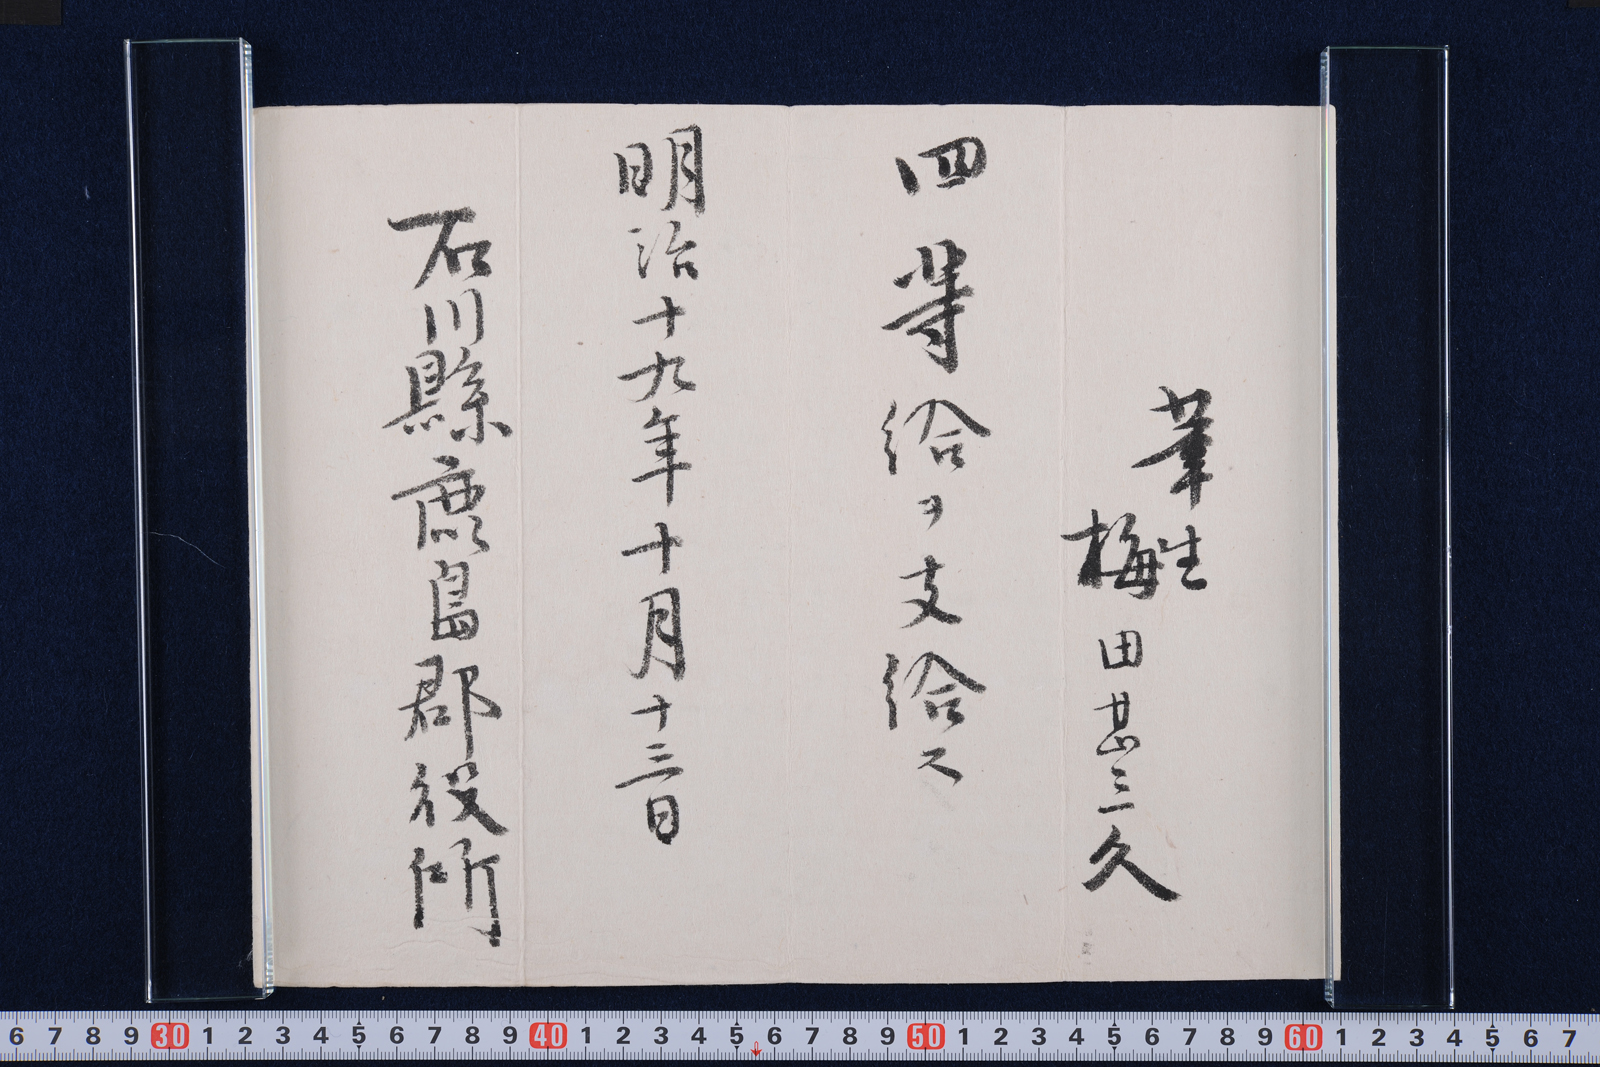 筆生
梅田甚三久
四等給ヲ支給ス
明治十九年十月十三日
石川縣鹿島郡役所
6 7 8 9 30 1 2 3 4 5 6 7 8 9 40 1 2 3 4 5 6 7 8 9 50 1 2 3 4 5 6 7 8 9 60 1 2 3 4 5 6 7